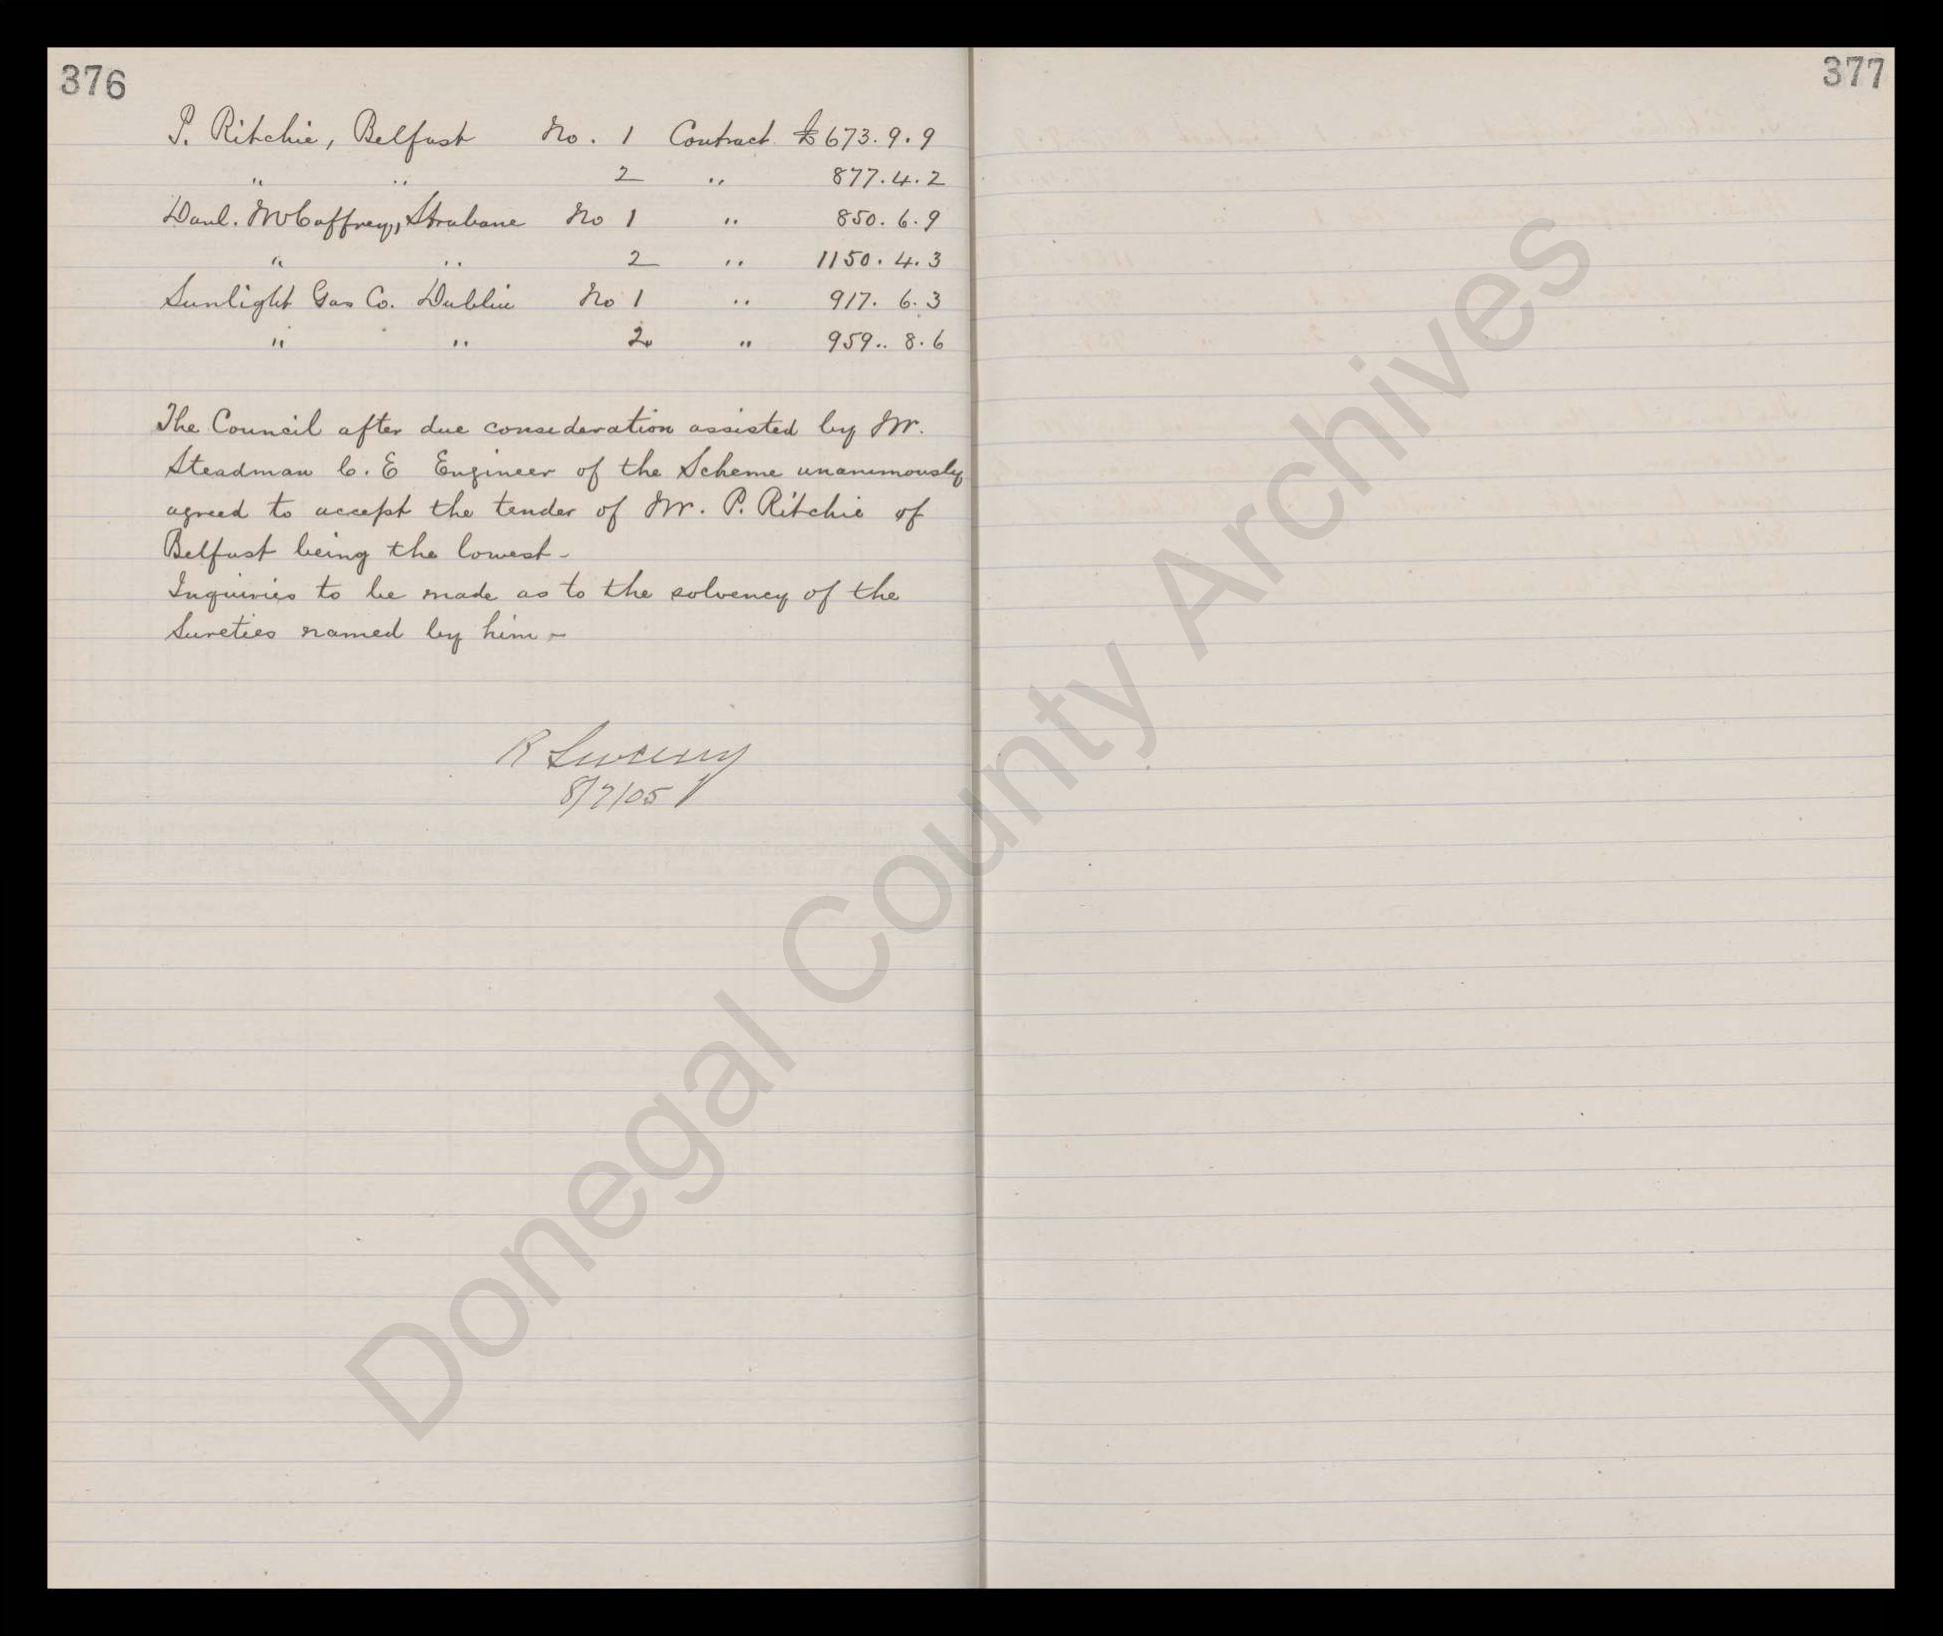 376
P. Ritchie, Belfast No. 1 Contract £673.9.9
" " 2 " 877.4.2
Danl. McCaffrey, Strabane No 1 " 850.6.9
" " 2 " 1150.4.3
Sunlight Gas Co. Dublin No 1 " 917.6.3
" " 2 " 959..8.6
The Council after due consideration assisted by Mr.
Steadman C. E Engineer of the Scheme unanimously
agreed to accept the tender of Mr. P. Ritchie of
Belfast being the lowest-
Inquiries to be made as to the solvency of the
Sureties named by him-
R Sweeny
8/7/05
377
Donegal County Archives